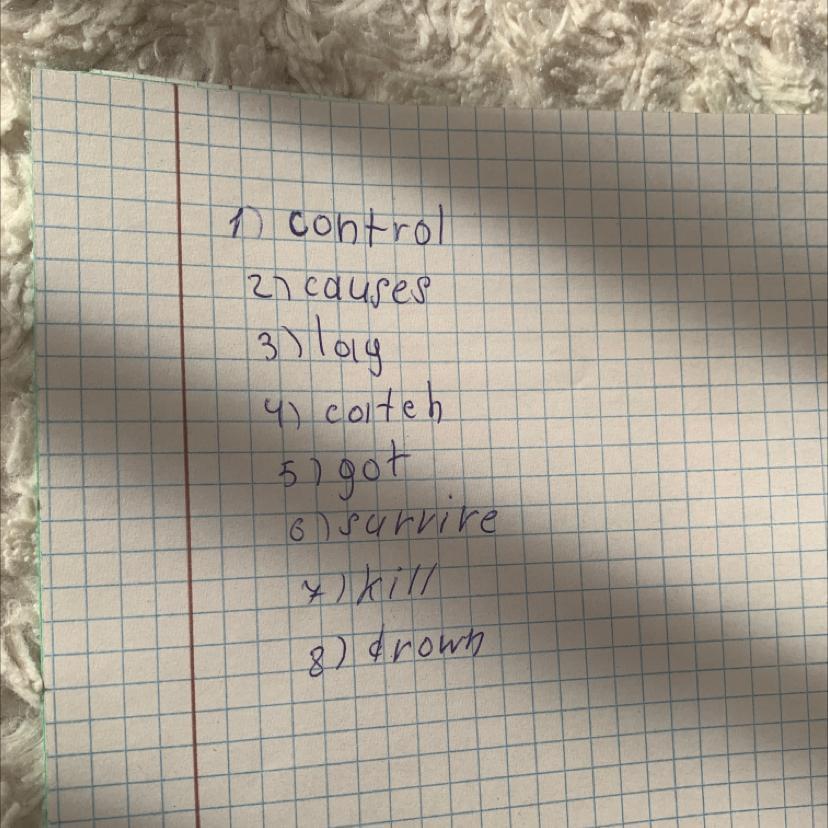 1) control
2) causes
3) lay
4) catch
5) got
6) survive
7) kill
8) drown